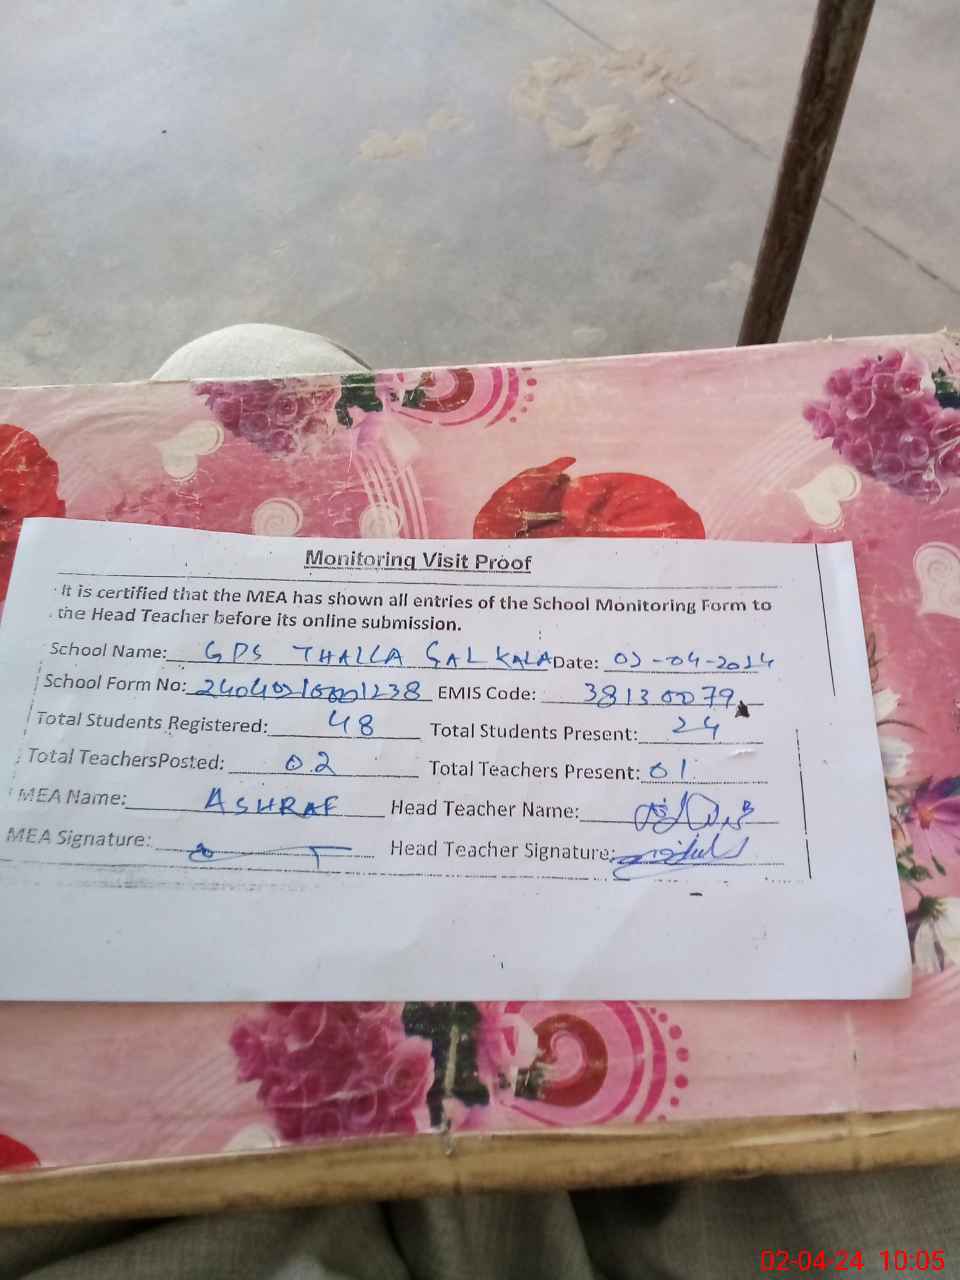 Monitoring Visit Proof
It is certified that the MEA has shown all entries of the School Monitoring Form to
the Head Teacher before its online submission.
School Name: GPS THALLA GAL KALA Date: 02-04-2024
School Form No: EMIS Code: 38130079
Total Students Registered: 48 Total Students Present: 24
Total TeachersPosted: 02 Total Teachers Present: 01
MEA Name: ASHRAF Head Teacher Name:
MEA Signature: Head Teacher Signature:
02-04-24 10:05